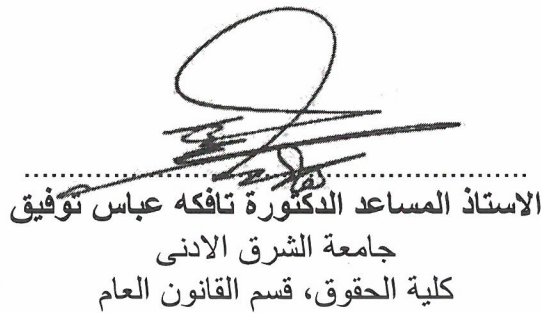 الاستاذ المساعد الدكتورة تافكه عباس توفيق
جامعة الشرق الادنى
كلية الحقوق، قسم القانون العام